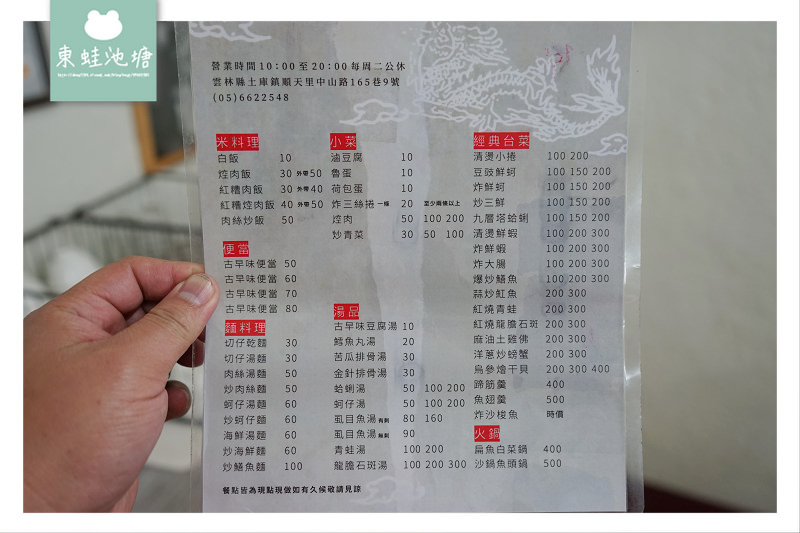 東蛙池塘
營業時間10:00至20:00每周二公休
雲林縣土庫鎮順天里中山路165巷9號
(05)6622548
米料理
白飯 10
焢肉飯 30 外帶50
紅糟肉飯 30 外帶40
紅糟焢肉飯 40 外帶50
肉絲炒飯 50
便當
古早味便當 50
古早味便當 60
古早味便當 70
古早味便當 80
麵料理
切仔乾麵 30
切仔湯麵 30
肉絲湯麵 50
炒肉絲麵 50
蚵仔湯麵 60
炒蚵仔麵 60
海鮮湯麵 60
炒海鮮麵 60
炒鱔魚麵 100
小菜
滷豆腐 10
魯蛋 10
荷包蛋 10
炸三絲捲 一條 20 至少兩條以上
焢肉 50 100 200
炒青菜 30 50 100
湯品
古早味豆腐湯 10
鱈魚丸湯 20
苦瓜排骨湯 30
金針排骨湯 30
蛤蜊湯 50 100 200
蚵仔湯 50 100 200
虱目魚湯 有刺 80 160
虱目魚湯 無刺 90
青蛙湯 100 200
龍膽石斑湯 100 200 300
經典台菜
清燙小捲 100 200
豆豉鮮蚵 100 150 200
炸鮮蚵 100 150 200
炒三鮮 100 150 200
九層塔蛤蜊 100 150 200
清燙鮮蝦 100 200 300
炸鮮蝦 100 200 300
炸大腸 100 200 300
爆炒鱔魚 100 200 300
蒜炒魟魚 200 300
紅燒青蛙 200 300
紅燒龍膽石斑 200 300
麻油土雞佛 200 300
洋蔥炒螃蟹 200 300
烏參燴干貝 200 300 400
蹄筋羹 400
魚翅羹 500
炸沙梭魚 時價
火鍋
扁魚白菜鍋 400
沙鍋魚頭鍋 500
餐點皆為現點現做如有久候敬請見諒